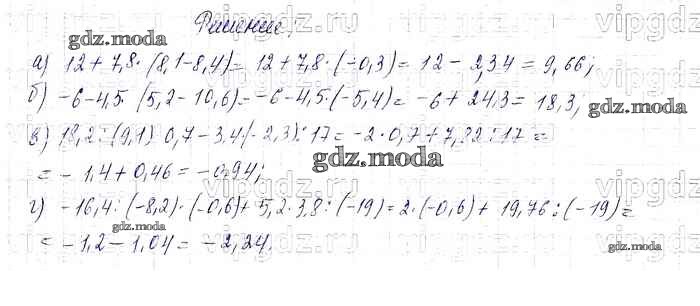 Решение.
gdz.moda
а) 12 + 7,8 · (8,1 - 8,4) = 12 + 7,8 · (-0,3) = 12 - 2,34 = 9,66;
б) -6 - 4,5 · (5,2 - 10,6) = -6 - 4,5 · (-5,4) = -6 + 24,3 = 18,3;
gdz.moda
в) 18,2 : (9,1) · 0,7 - 3,4 (-2,3) : 17 = -2 · 0,7 + 7,82 : 17 =
gdz.moda
= -1,4 + 0,46 = -0,94;
г) -16,4 : (-8,2) · (-0,6) + 5,2 · 3,8 : (-19) = 2 · (-0,6) + 19,76 : (-19) =
gdz.moda
= -1,2 - 1,04 = -2,24.
gdz.moda